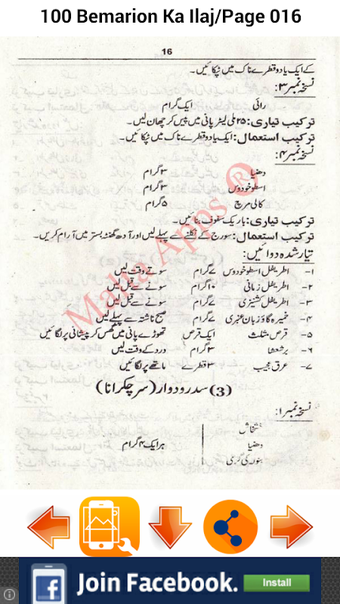 100 Bemarion Ka Ilaj/Page 016
16
کے ایک یا دو قطرے ناک میں ٹپکائیں۔
نسخہ نمبر ۳:
رائی ایک گرام
ترکیب تیاری: ۲۵ ملی لیٹر پانی میں پیس کر چھان لیں۔
ترکیب استعمال: ایک یا دو قطرے ناک میں ٹپکائیں۔
نسخہ نمبر ۴:
دھنیا ۳ گرام
اسطوخودوس ۳ گرام
کالی مرچ ۵ گرام
ترکیب تیاری: باریک سفوف بنائیں۔
ترکیب استعمال: سورج کے نکلنے سے پہلے لیں اور آدھ گھنٹہ بستر میں آرام کریں۔
تیار شدہ دوائیں:
۱- اطریفل اسطوخودوس ۷ گرام سوتے وقت لیں
۲- اطریفل زمانی ۱۰ گرام سونے سے قبل لیں
۳- اطریفل کشنیزی ۷ گرام سونے سے قبل لیں
۴- خمیرہ گاؤزبان عنبری ۷ گرام صبح ناشتہ سے پہلے لیں
۵- قرص مثلث ایک قرص تھوڑے پانی میں گھس کر پیشانی پر لگائیں
۶- برشعشا ۳ گرام درد کے وقت لیں
۷- عرق عجیب ۳ قطرے ماتھے پر لگائیں
(3) سدر و دوار (سر چکرانا)
نسخہ نمبر ۱:
خشخاش
دھنیا ہر ایک ۴ گرام
کی گری
Maha Apps ®
Join Facebook.
Install